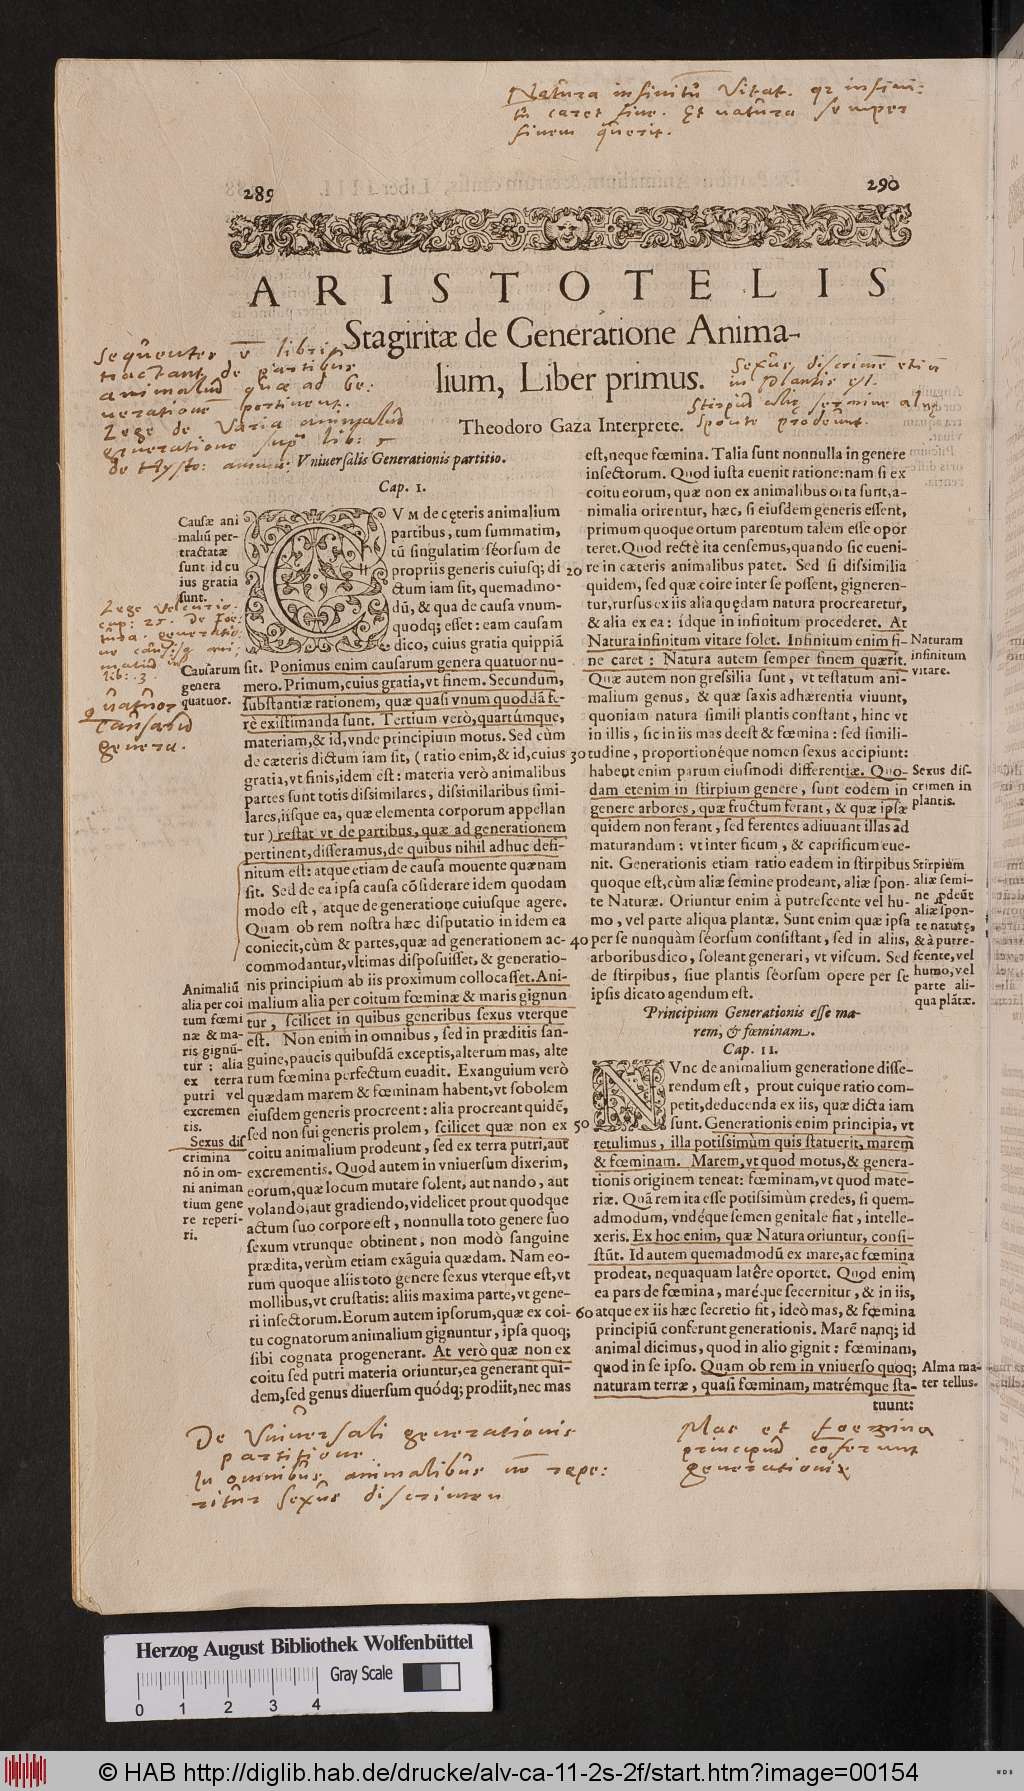 Natura infinitũ vitat. qr infini:
tũ caret fine. Et natura semper
finem querit.
289
290
ARISTOTELIS
Stagiritæ de Generatione Anima-
lium, Liber primus.
Theodoro Gaza Interprete.
tractant de partibus
animaliũ quæ ad Ge:
nerationẽ pertinent.
Lege de Varia animaliũ
generatione
Sexus discrimẽ etiã
in Plantis est.
Stirpiũ aliæ semine aliæ
sponte prodeunt.
Vniuersalis Generationis partitio.
Cap. I.
Causæ ani
maliũ per-
tractatæ
sunt id cu
ius gratia
sunt.
CVM de cęteris animalium
partibus, tum summatim,
tũ singulatim séorsum de
propriis generis cuiusq; di
ctum iam sit, quemadmo-
dũ, & qua de causa vnum-
quodq; esset: eam causam
dico, cuius gratia quippiã
sit. Ponimus enim causarum genera quatuor nu-
mero. Primum, cuius gratia, vt finem. Secundum,
substantiæ rationem, quæ quasi vnum quoddã fe-
rè existimanda sunt. Tertium verò, quartúmque,
materiam, & id, vnde principium motus. Sed cùm
de cæteris dictum iam sit, (ratio enim, & id, cuius
gratia, vt finis, idem est: materia verò animalibus
partes sunt totis dissimilares, dissimilaribus simi-
lares, iisque ea, quæ elementa corporum appellan
tur) restat vt de partibus, quæ ad generationem
pertinent, disseramus, de quibus nihil adhuc defi-
nitum est: atque etiam de causa mouente quænam
sit. Sed de ea ipsa causa cõsiderare idem quodam
modo est, atque de generatione cuiusque agere.
Quam ob rem nostra hæc disputatio in idem ea
coniecit, cùm & partes, quæ ad generationem ac-
commodantur, vltimas disposuisset, & generatio-
nis principium ab iis proximum collocasset. Ani-
malium alia per coitum fœminæ & maris gignun
tur, scilicet in quibus generibus sexus vterque
est. Non enim in omnibus, sed in præditis san-
guine, paucis quibusdã exceptis, alterum mas, alte
rum fœmina perfectum euadit. Exanguium verò
quædam marem & fœminam habent, vt sobolem
eiusdem generis procreent: alia procreant quidẽ,
sed non sui generis prolem, scilicet quæ non ex
coitu animalium prodeunt, sed ex terra putri, aut
excrementis. Quod autem in vniuersum dixerim,
eorum, quæ locum mutare solent, aut nando, aut
volando, aut gradiendo, videlicet prout quodque
actum suo corpore est, nonnulla toto genere suo
sexum vtrunque obtinent, non modò sanguine
prædita, verùm etiam exãguia quædam. Nam eo-
rum quoque aliis toto genere sexus vterque est, vt
mollibus, vt crustatis: aliis maxima parte, vt gene-
ri insectorum. Eorum autem ipsorum, quæ ex coi-
tu cognatorum animalium gignuntur, ipsa quoq;
sibi cognata progenerant. At verò quæ non ex
coitu sed putri materia oriuntur, ea generant qui-
dem, sed genus diuersum quódq; prodiit, nec mas
Causarum
genera
quatuor.
Quatuor
Causarũ
genera.
Animaliũ
alia per coi
tum fœmi
næ & ma-
ris gignũ-
tur: alia
ex terra
putri vel
excremen
tis.
Sexus dis
crimina
nõ in om-
ni animan
tium gene
re reperi-
ri.
20
30
40
50
60
est, neque fœmina. Talia sunt nonnulla in genere
insectorum. Quod iusta euenit ratione: nam si ex
coitu eorum, quæ non ex animalibus orta sunt, a-
nimalia orirentur, hæc, si eiusdem generis essent,
primum quoque ortum parentum talem esse opor
teret. Quod rectè ita censemus, quando sic eueni-
re in cæteris animalibus patet. Sed si dissimilia
quidem, sed quæ coire inter se possent, gigneren-
tur, rursus ex iis alia quędam natura procrearetur,
& alia ex ea: ídque in infinitum procederet. At
Natura infinitum vitare solet. Infinitum enim fi-
ne caret: Natura autem semper finem quærit.
Quæ autem non gressilia sunt, vt testatum ani-
malium genus, & quæ saxis adhærentia viuunt,
quoniam natura simili plantis constant, hinc vt
in illis, sic in iis mas deest & fœmina: sed simili-
tudine, proportionéque nomen sexus accipiunt:
habent enim parum eiusmodi differentiæ. Quo-
dam etenim in stirpium genere, sunt eodem in
genere arbores, quæ fructum ferant, & quæ ipsæ
quidem non ferant, sed ferentes adiuuant illas ad
maturandum: vt inter ficum, & caprificum eue-
nit. Generationis etiam ratio eadem in stirpibus
quoque est, cùm aliæ semine prodeant, aliæ spon-
te Naturæ. Oriuntur enim à putrescente vel hu-
mo, vel parte aliqua plantæ. Sunt enim quæ ipsa
per se nunquàm séorsum consistant, sed in aliis,
arboribus dico, soleant generari, vt viscum. Sed
de stirpibus, siue plantis séorsum opere per se
ipsis dicato agendum est.
Principium Generationis esse ma-
rem, & fœminam.
Cap. II.
NVnc de animalium generatione disse-
rendum est, prout cuique ratio com-
petit, deducenda ex iis, quæ dicta iam
sunt. Generationis enim principia, vt
retulimus, illa potissimùm quis statuerit, marem
& fœminam. Marem, vt quod motus, & genera-
tionis originem teneat: fœminam, vt quod mate-
riæ. Quã rem ita esse potissimùm credes, si quem-
admodum, vndéque semen genitale fiat, intelle-
xeris. Ex hoc enim, quæ Natura oriuntur, consi-
stũt. Id autem quemadmodũ ex mare, ac fœmina
prodeat, nequaquam latêre oportet. Quod enim
ea pars de fœmina, maréque secernitur, & in iis,
atque ex iis hæc secretio fit, ideò mas, & fœmina
principiũ conferunt generationis. Marẽ nanq; id
animal dicimus, quod in alio gignit: fœminam,
quod in se ipso. Quam ob rem in vniuerso quoq;
naturam terræ, quasi fœminam, matrémque sta-
tuunt:
Naturam
infinitum
vitare.
Sexus dis-
crimen in
plantis.
Stirpium
aliæ semi-
ne ꝓdeũt
aliæ spon-
te naturę,
& à putre-
scente, vel
humo, vel
parte ali-
qua plãtæ.
Alma ma-
ter tellus.
De Vniuersali generationis
partitione
In omnibus animalibus nõ repe:
ritur sexus discrimen
Mas et foemina
principiũ cõferunt
generationis
Herzog August Bibliothek Wolfenbüttel
Gray Scale
0 1 2 3 4
© HAB http://diglib.hab.de/drucke/alv-ca-11-2s-2f/start.htm?image=00154